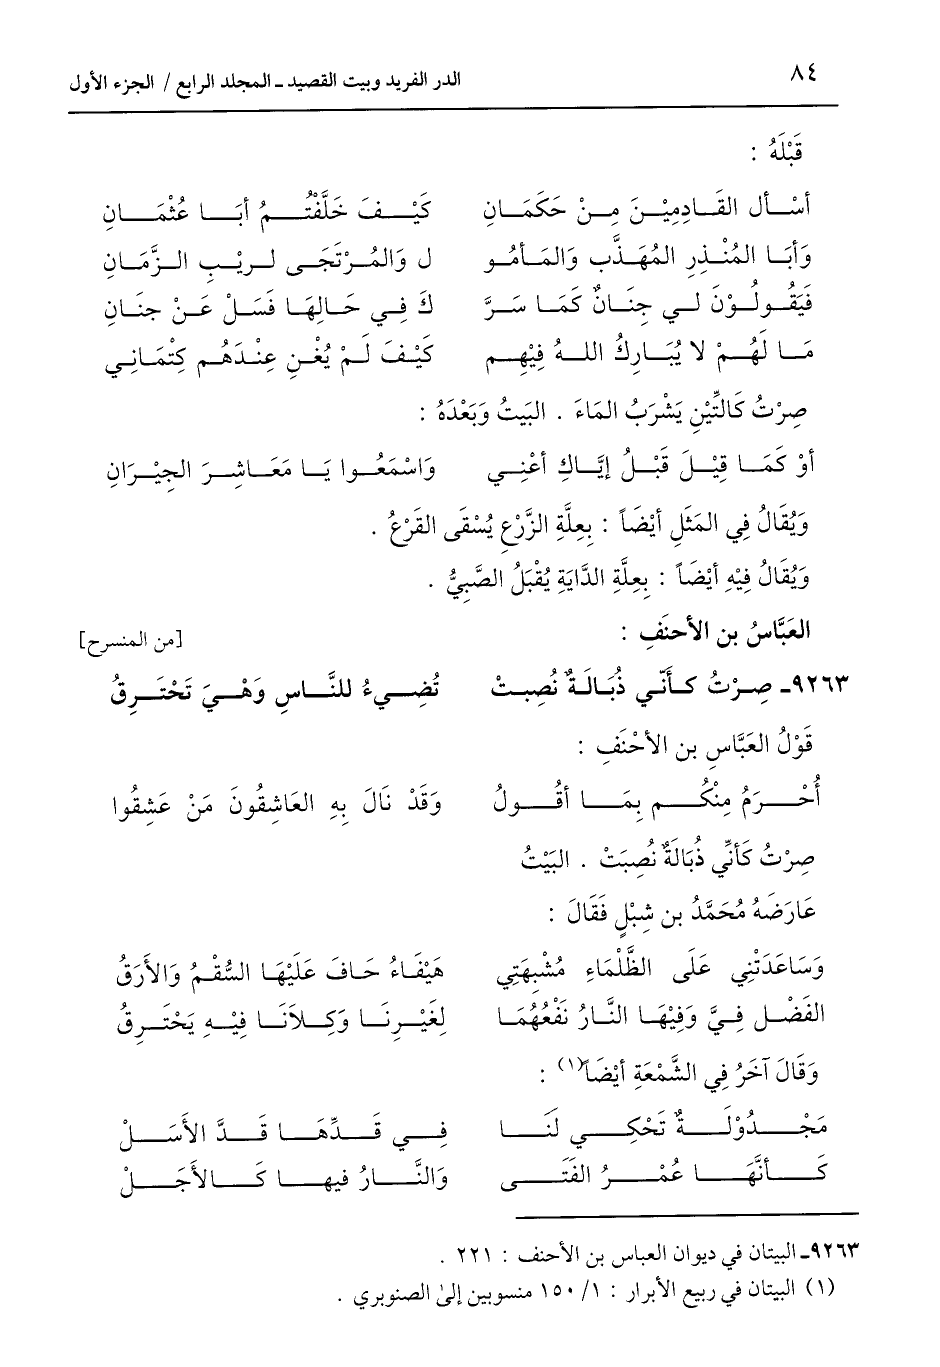 ٨٤ الدر الفريد وبيت القصيد ـ المجلد الرابع / الجزء الأول
قَبْلَهُ :
أسْأل القَادِمِيْنَ مِنْ حَكَمَانِ كَيْفَ خَلَّفْتُمُ أبَا عُثْمَانِ
وَأبَا المُنْذِرِ المُهَذَّبِ وَالمَأمُو لِ وَالمُرْتَجَى لِرِيْبِ الزَّمَانِ
فَيَقُولُوْنَ لي جِنَانٌ كَمَا سَرَّ كَ فِي حَالِهَا فَسَلْ عَنْ جِنَانِ
مَا لَهُمْ لا يُبَارِكُ اللهُ فِيْهِم كَيْفَ لَمْ يُغْنِ عِنْدَهُم كِتْمَانِي
صِرْتُ كَالتِّيْنِ يَشْرَبُ المَاءَ . البَيْتُ وَبَعْدَهُ :
أوْ كَمَا قِيْلَ قَبْلُ إيَّاكِ أعْنِي وَاسْمَعُوا يَا مَعَاشِرَ الجِيْرَانِ
وَيُقَالُ فِي المَثَلِ أيْضَاً : بِعِلَّةِ الزَّرْعِ يُسْقَى القَرْعُ .
وَيُقَالُ فِيْهِ أيْضَاً : بِعِلَّةِ الدَّايَةِ يُقْبَلُ الصَّبِيُّ .
العَبَّاسُ بن الأحنَفِ : [من المنسرح]
٩٢٦٣ـ صِرْتُ كَأنّي ذُبَالَةٌ نُصِبتْ تُضِيءُ للنَّاسِ وَهْيَ تَحْتَرِقُ
قَوْلُ العَبَّاسِ بن الأحْنَفِ :
أُحْرَمُ مِنْكُم بِمَا أقُولُ وَقَدْ نَالَ بِهِ العَاشِقُونَ مَنْ عَشِقُوا
صِرْتُ كَأنِّي ذُبَالَةٌ نُصِبَتْ . البَيْتُ
عَارَضَهُ مُحَمَّدُ بن شِبْلٍ فَقَالَ :
وَسَاعَدَتْنِي عَلَى الظَّلْمَاءِ مُشْبِهَتِي هَيْفَاءُ حَافَ عَلَيْهَا السُّقْمُ وَالأرَقُ
الفَضْلِ فِيَّ وَفِيْهَا النَّارُ نَفْعُهُمَا لِغَيْرِنَا وَكِلاَنَا فِيْهِ يَحْتَرِقُ
وَقَالَ آخَرُ فِي الشَّمْعَةِ أيْضَاً(١) :
مَجْدُوْلَةٌ تَحْكِي لَنَا فِي قَدِّهَا قَدَّ الأسَلْ
كَأنَّهَا عُمْرُ الفَتَى وَالنَّارُ فيها كَالأَجَلْ
٩٢٦٣ـ البيتان في ديوان العباس بن الأحنف : ٢٢١ .
(١) البيتان في ربيع الأبرار : ١/ ١٥٠ منسوبين إلى الصنوبري .